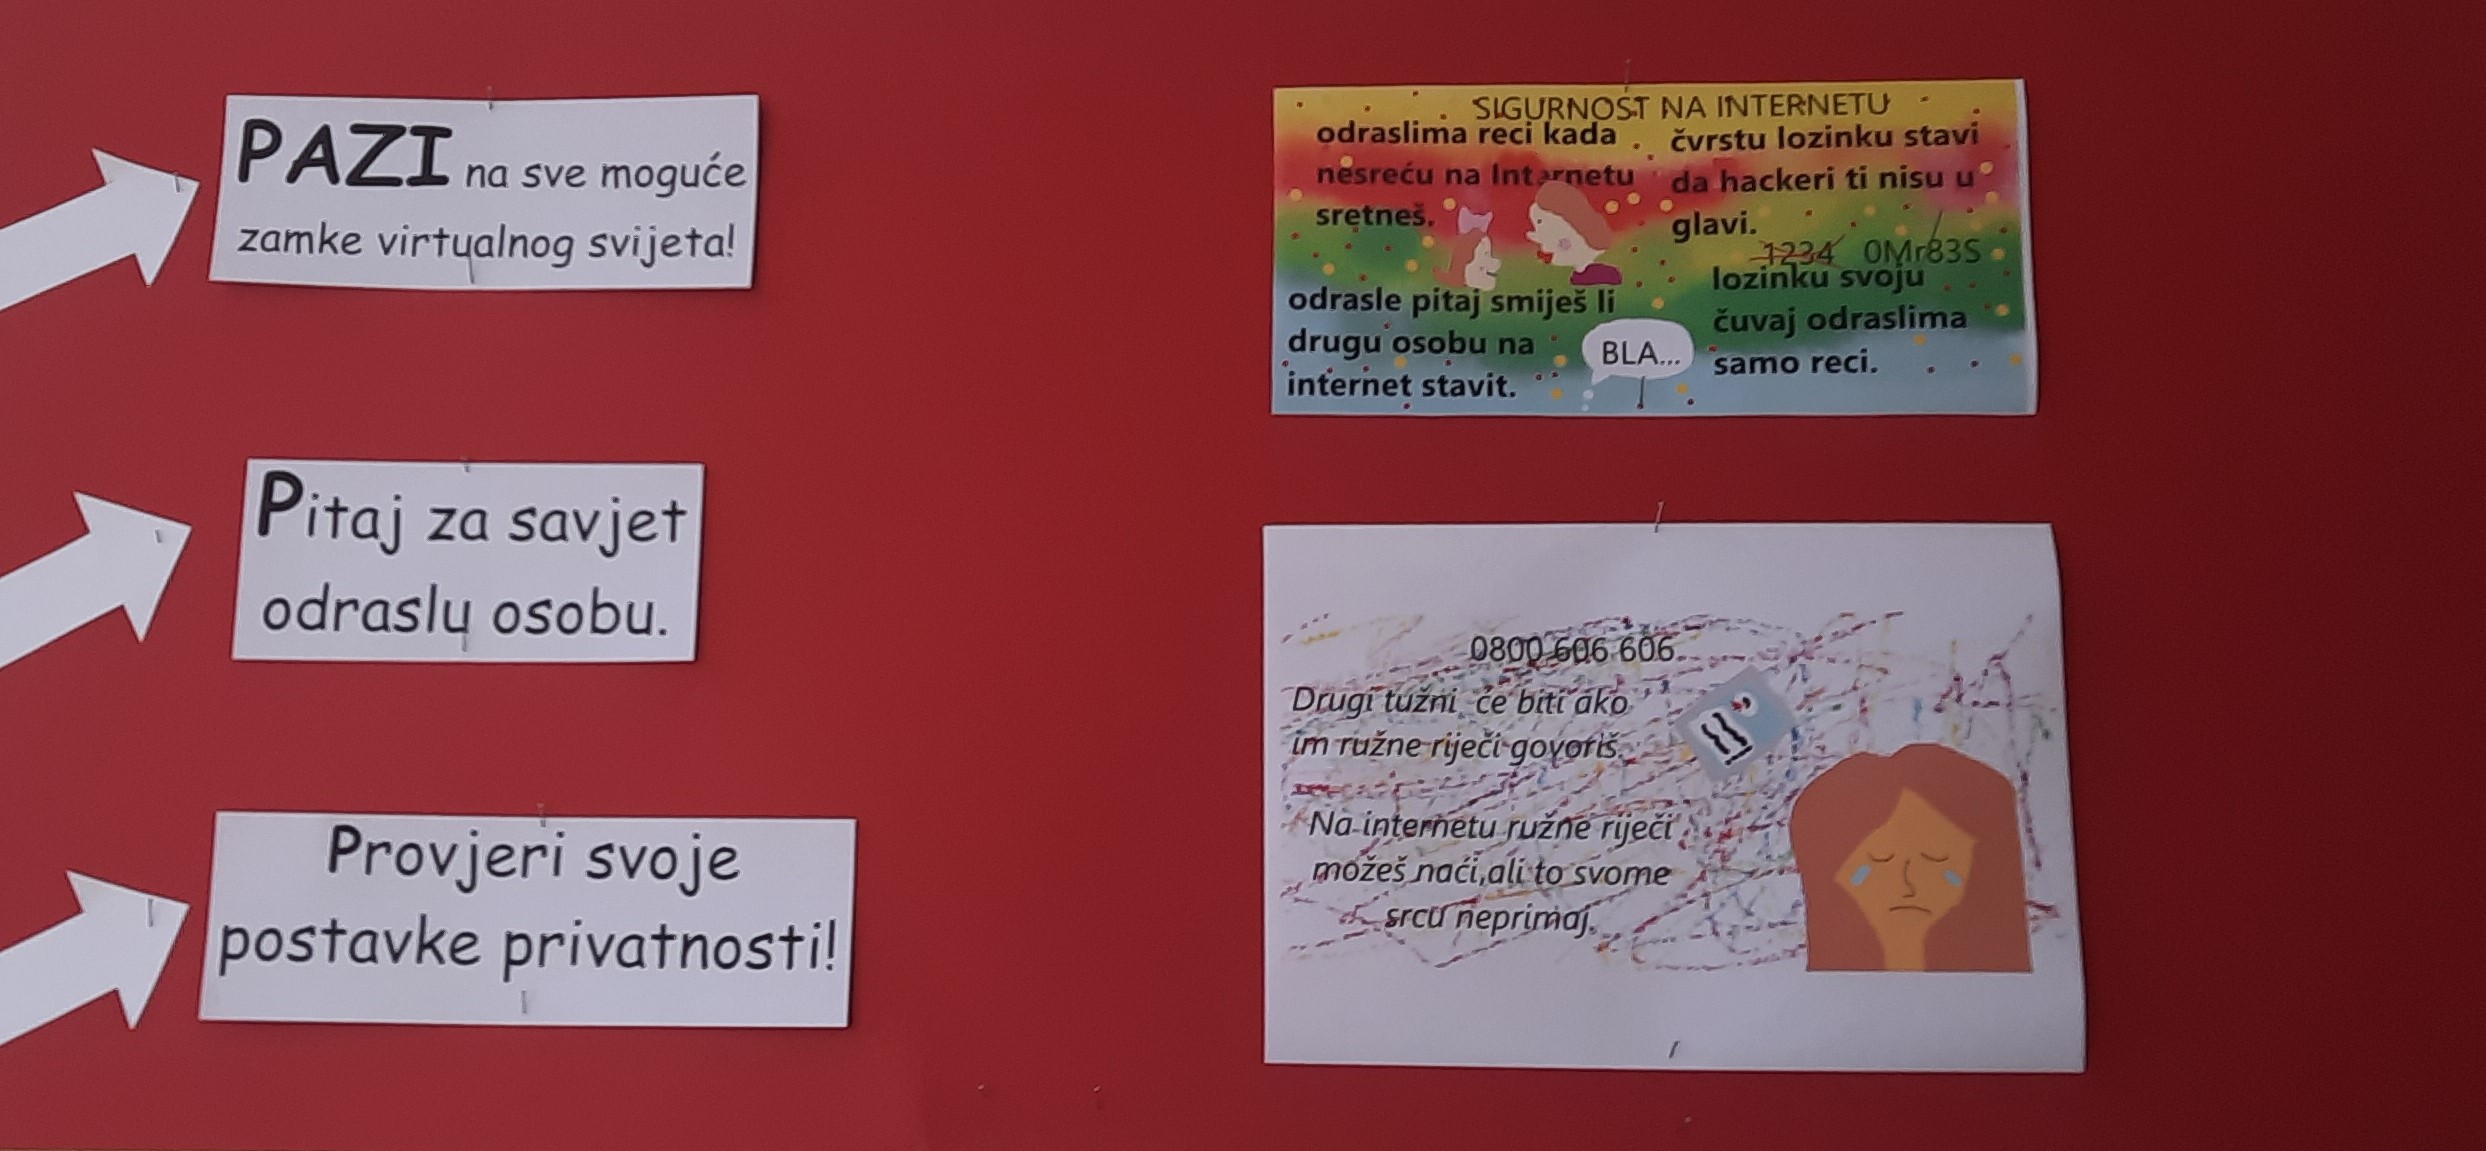 PAZI na sve moguće
zamke virtualnog svijeta!
Pitaj za savjet
odraslu osobu.
Provjeri svoje
postavke privatnosti!
SIGURNOST NA INTERNETU
odraslima reci kada
nesreću na Internetu
sretneš.
čvrstu lozinku stavi
da hackeri ti nisu u
glavi.
1234 0Mr83S
odrasle pitaj smiješ li
drugu osobu na
internet stavit.
BLA...
lozinku svoju
čuvaj odraslima
samo reci.
0800 606 606
Drugi tužni će biti ako
im ružne riječi govoriš.
Na internetu ružne riječi
možeš naći,ali to svome
srcu neprimaj.